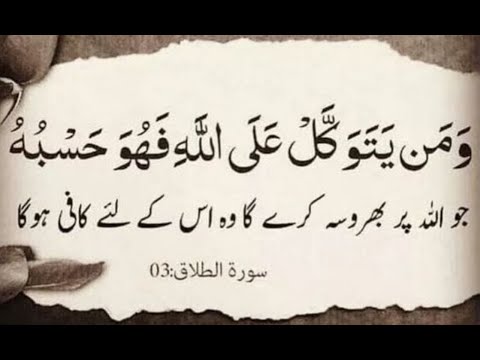 وَمَن يَتَوَكَّلْ عَلَى اللَّهِ فَهُوَ حَسْبُهُ
جو اللہ پر بھروسہ کرے گا وہ اس کے لئے کافی ہوگا
سورة الطلاق:03